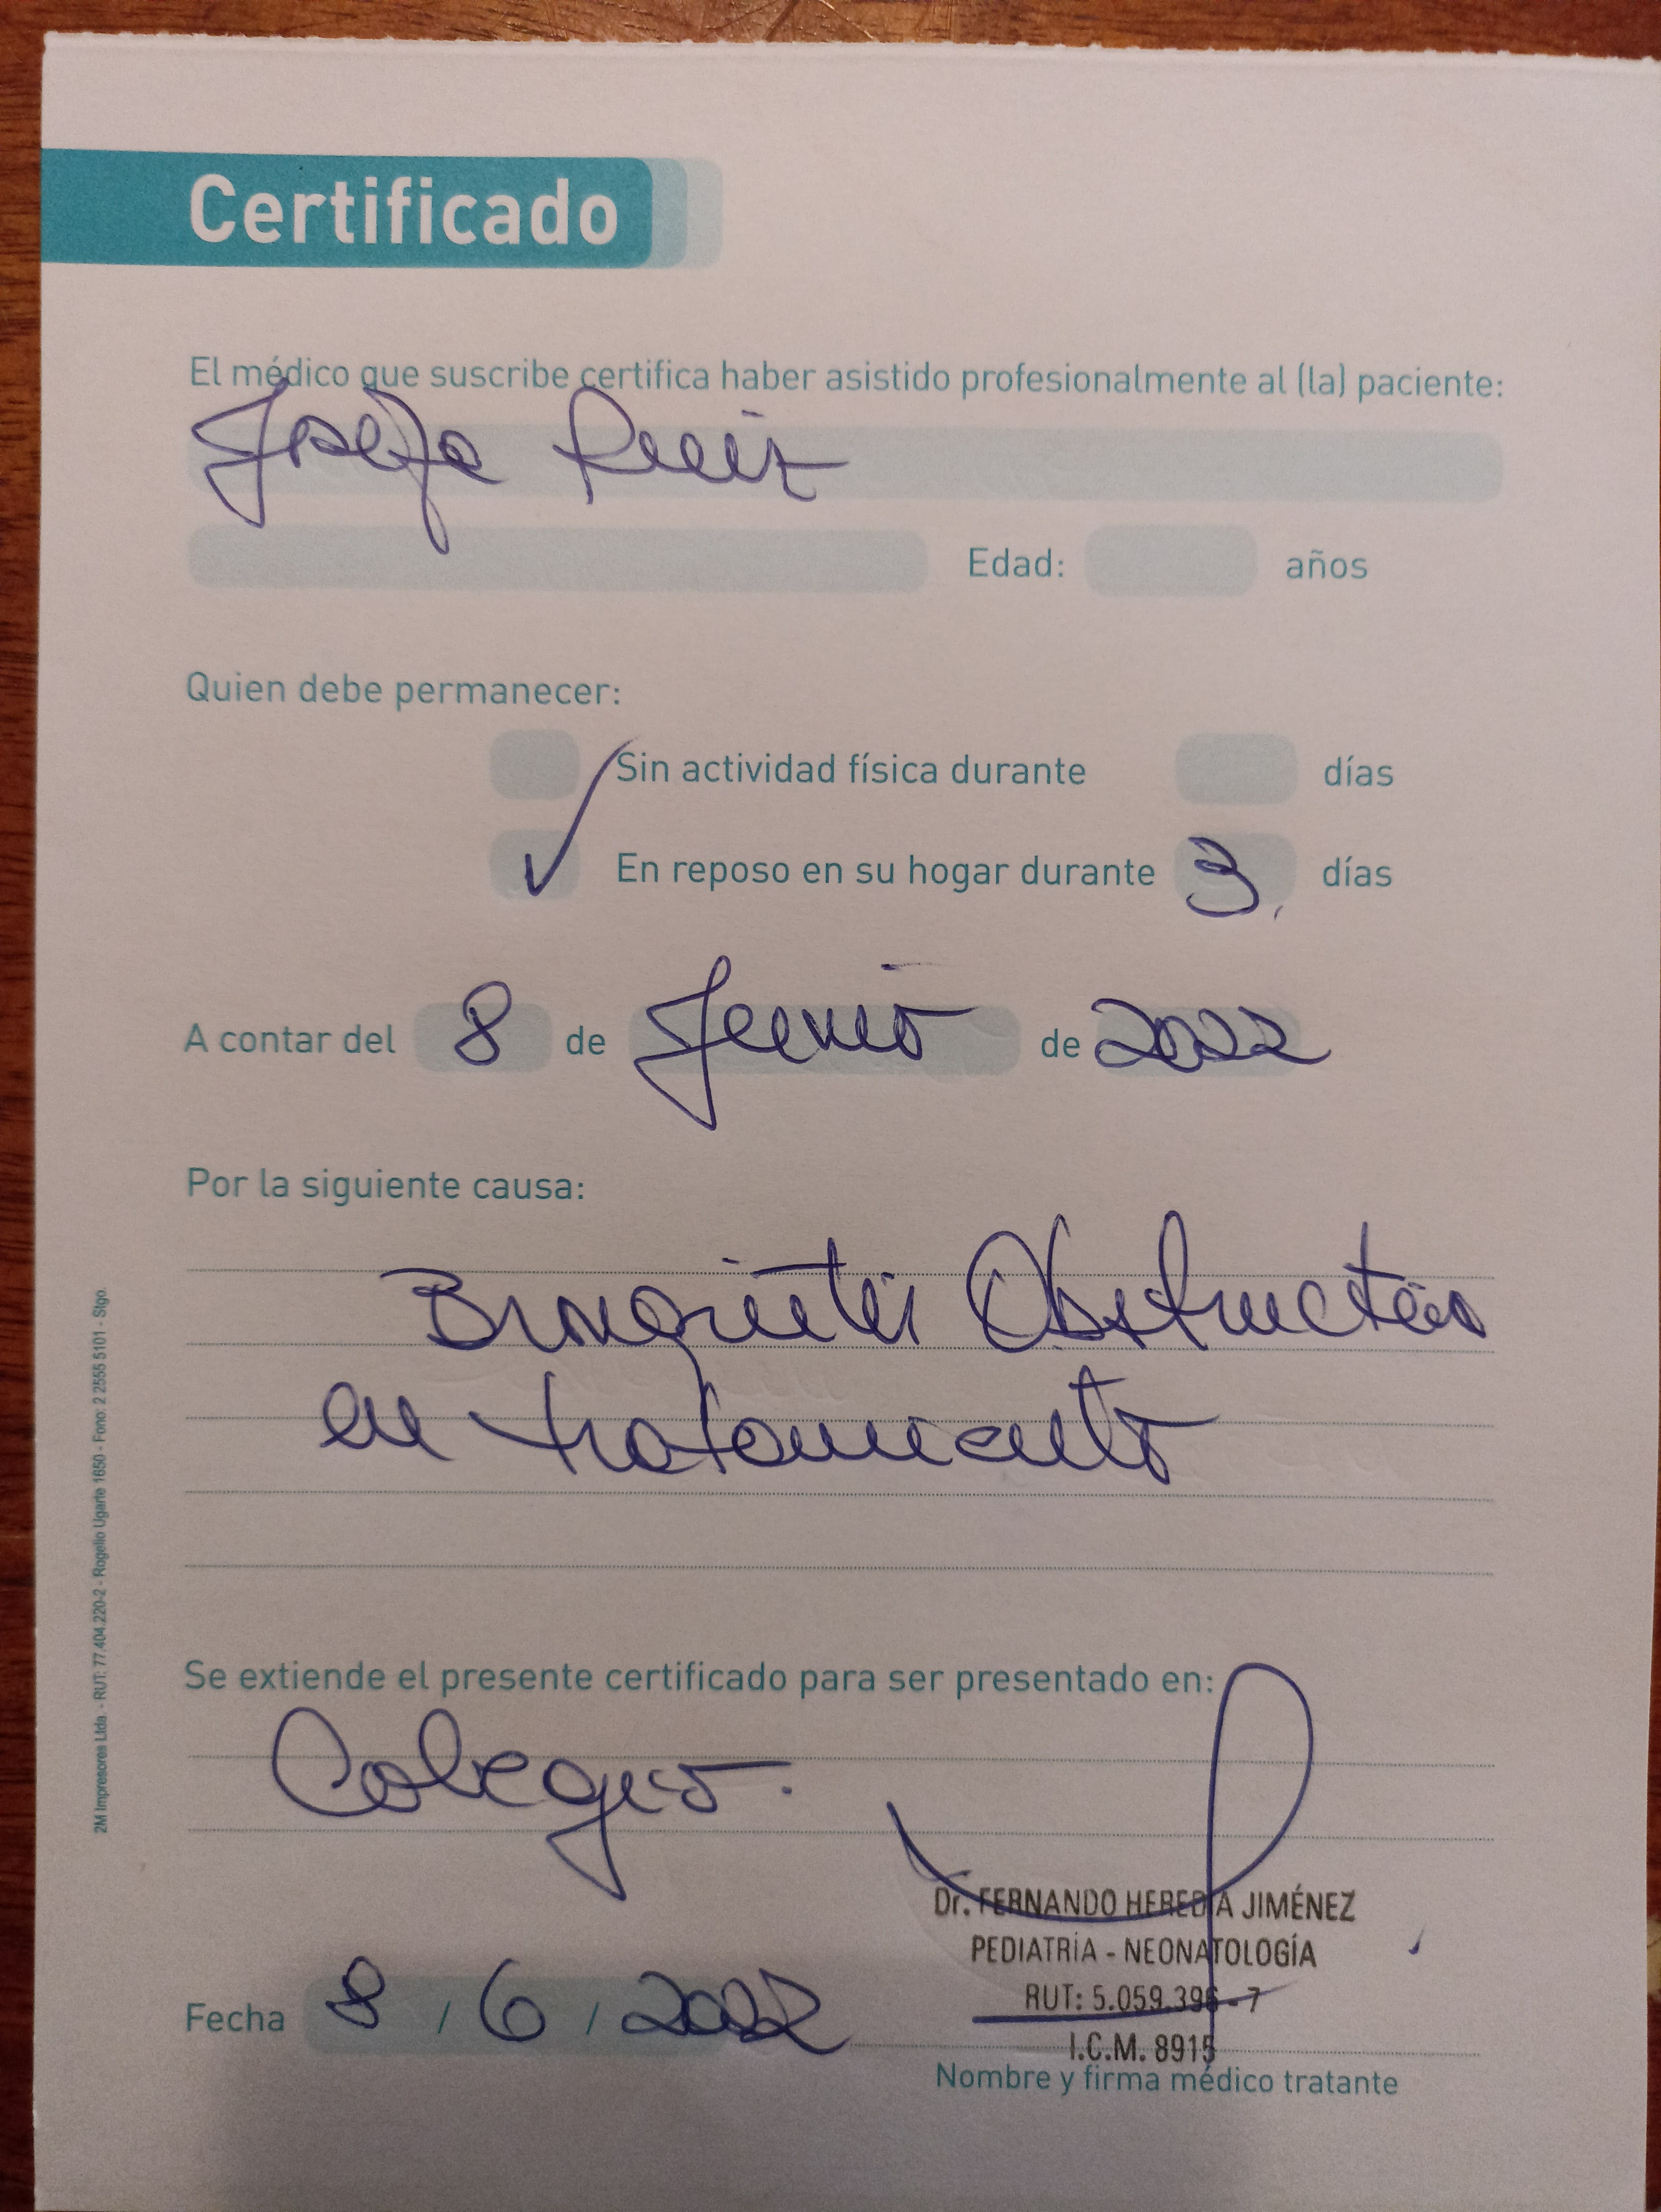 Certificado
El médico que suscribe certifica haber asistido profesionalmente al (la) paciente:
Josefa Ruiz
Edad: años
Quien debe permanecer:
Sin actividad física durante días
En reposo en su hogar durante 3 días
A contar del 8 de Junio de 2022
Por la siguiente causa:
Bronquitis Obstructiva
en tratamiento
Se extiende el presente certificado para ser presentado en:
Colegio.
Dr. FERNANDO HEREDIA JIMÉNEZ
PEDIATRÍA - NEONATOLOGÍA
RUT: 5.059.396-7
I.C.M. 8915
Fecha 8 / 6 / 2022
Nombre y firma médico tratante
2M Impresores Ltda - RUT: 77.404.220-2 - Rogelio Ugarte 1650 - Fono: 2 2555 5101 - Stgo.